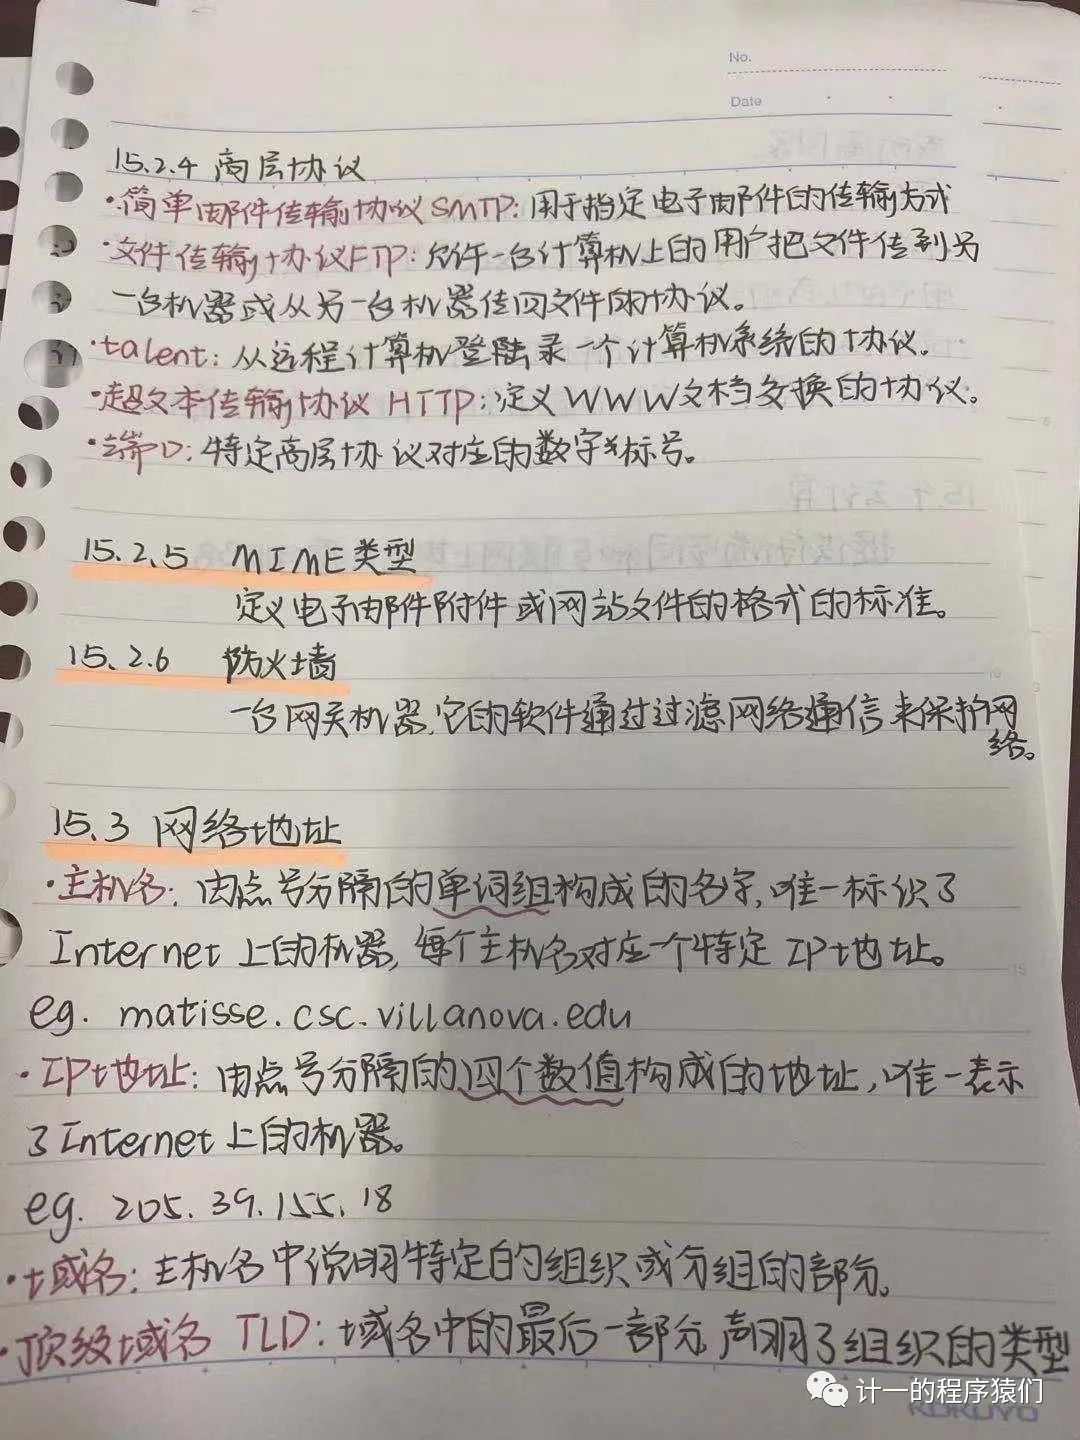 No.
Date
15.2.4 高层协议
·简单邮件传输协议SMTP:用于指定电子邮件的传输方式
·文件传输协议FTP:允许一台计算机上的用户把文件传到另
一台机器或从另一台机器传回文件的协议。
·talent:从远程计算机登陆录一个计算机系统的协议。
·超文本传输协议 HTTP:定义WWW文档交换的协议。
·端口:特定高层协议对应的数字标号。
15.2.5 MIME类型
定义电子邮件附件或网站文件的格式的标准。
15.2.6 防火墙
一台网关机器,它的软件通过过滤网络通信来保护网
络。
15.3 网络地址
·主机名:由点号分隔的单词组构成的名字,唯一标识了
Internet上的机器,每个主机名对应一个特定IP地址。
eg. matisse.csc.villanova.edu
·IP地址:由点号分隔的四个数值构成的地址,唯一表示
了Internet上的机器。
eg. 205.39.155.18
·域名:主机名中说明特定的组织或分组的部分。
·顶级域名 TLD:域名中的最后一部分,声明了组织的类型
计一的程序猿们
KOKUYO